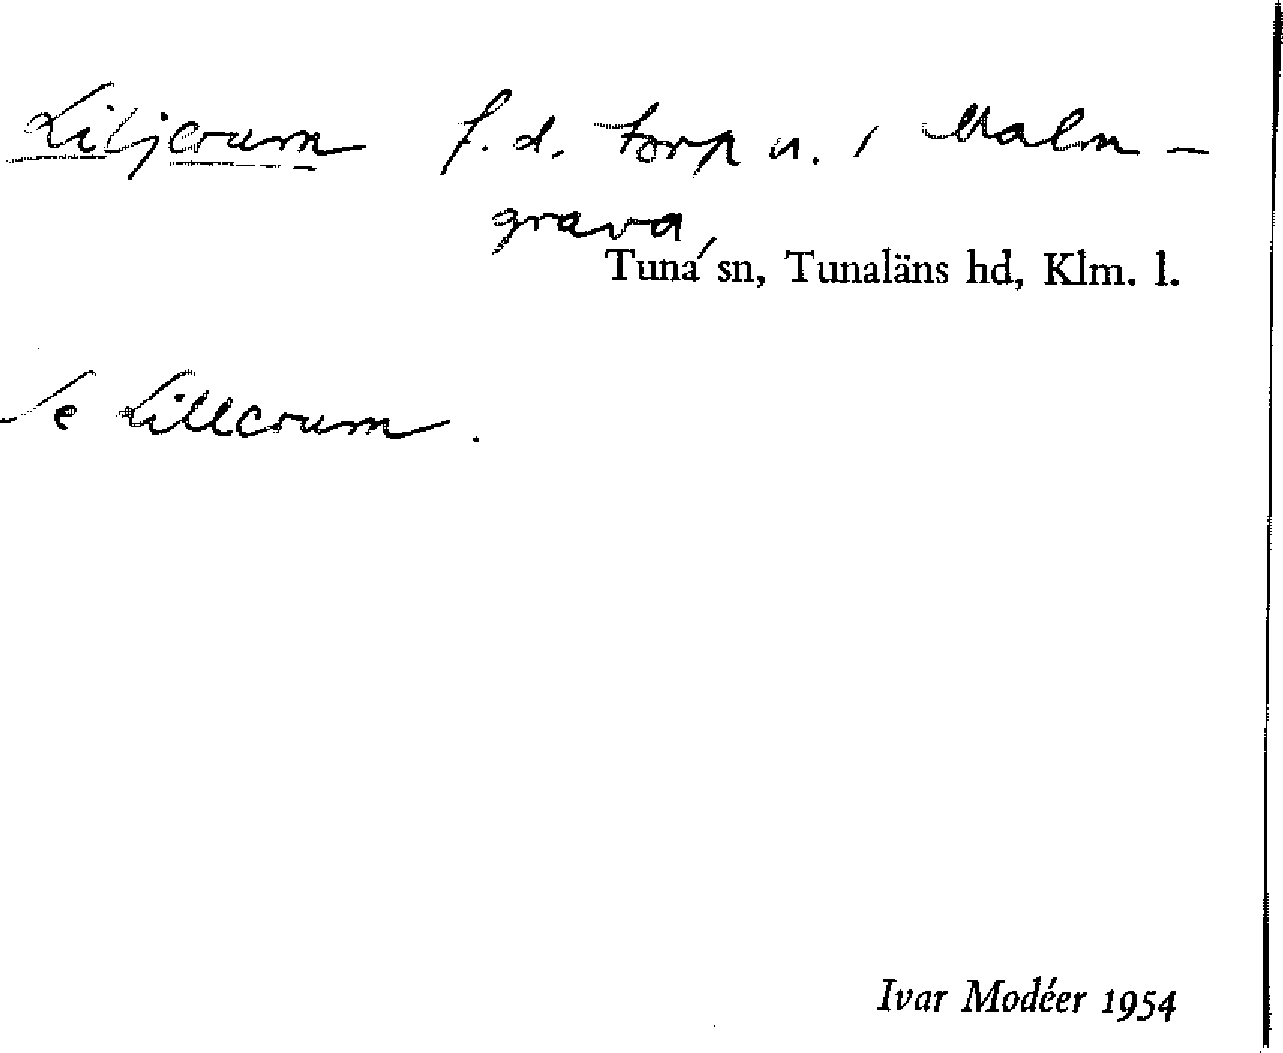 Liljerum f. d. torp u. 1 Malm-
grava,
Tuna sn, Tunaläns hd, Klm. l.
Se Lillerum.
Ivar Modéer 1954